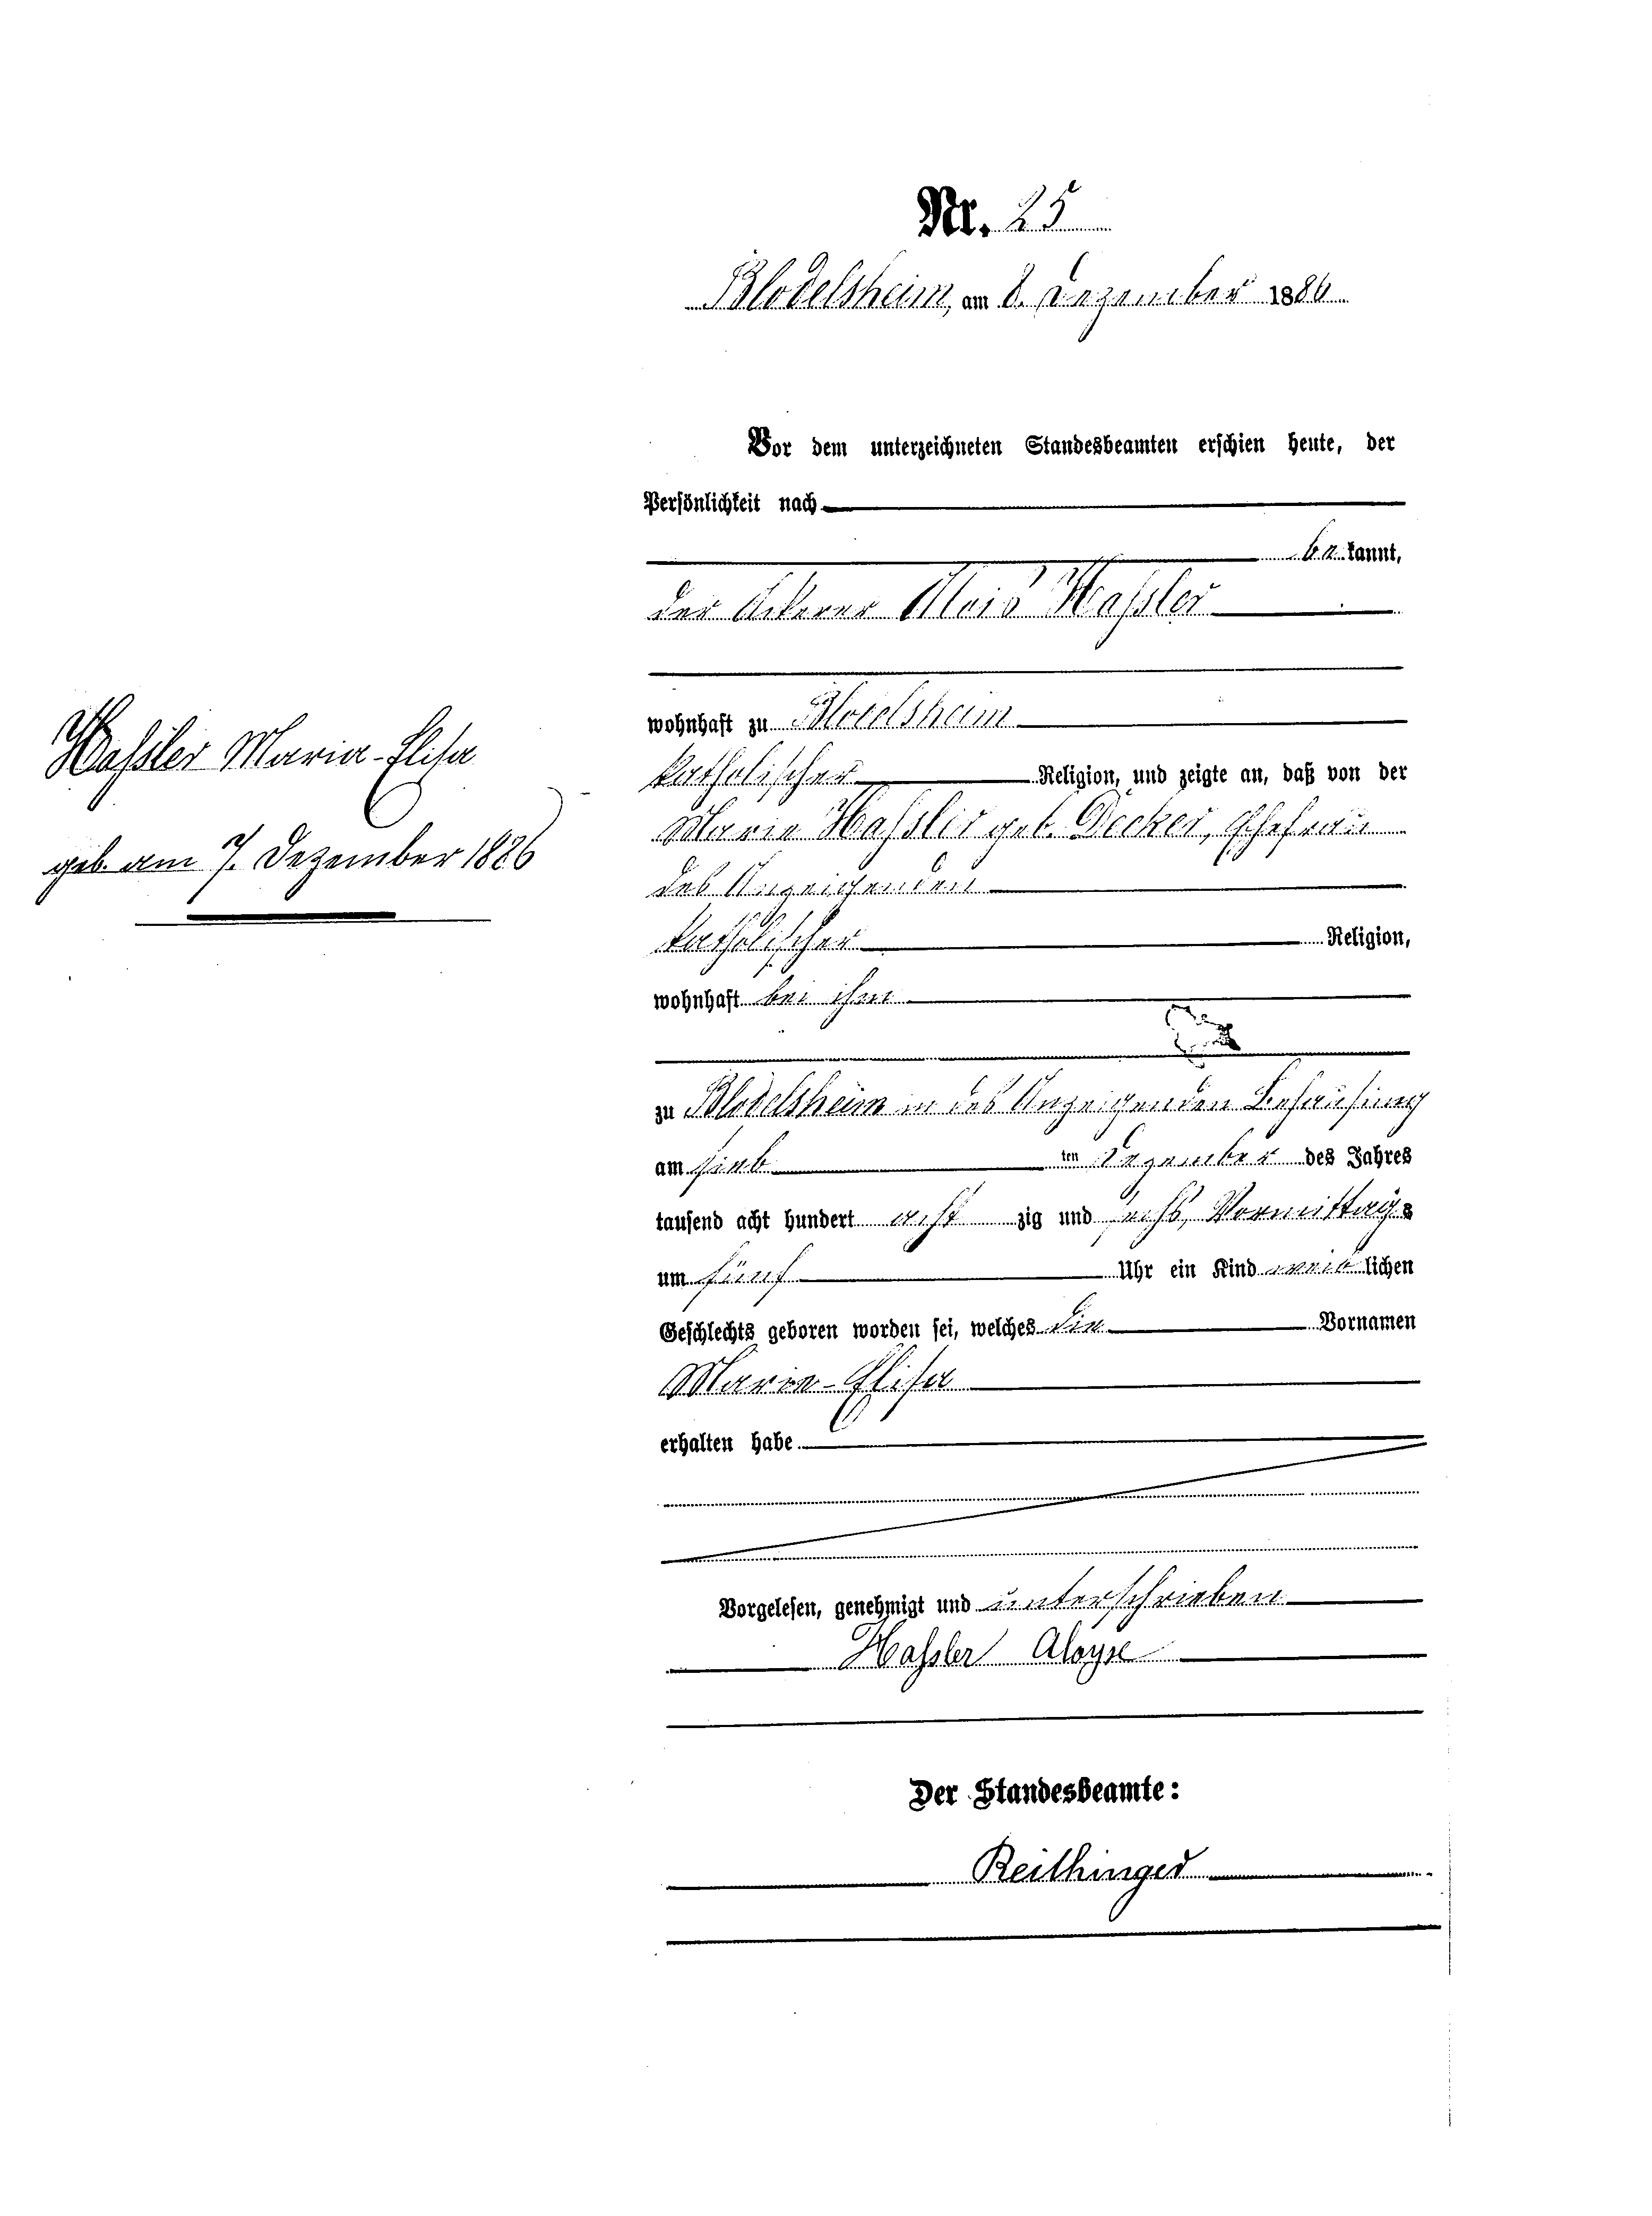 Nr. 25
Blodelsheim, am 8. Dezember 1886
Vor dem unterzeichneten Standesbeamten erschien heute, der
Persönlichkeit nach
bekannt,
der Ackerer Alois Haſsler
wohnhaft zu Blodelsheim
katholischer Religion, und zeigte an, daß von der
Marie Haſsler geb. Decker, Ehefrau
des Anzeigenden
katholischer Religion,
wohnhaft bei ihm
zu Blodelsheim in des Anzeigenden Behausung
am sieb ten Dezember des Jahres
tausend acht hundert acht zig und sechs, Vormittags
um fünf Uhr ein Kind weiblichen
Geschlechts geboren worden sei, welches die Vornamen
Maria-Elisa
erhalten habe
Vorgelesen, genehmigt und unterschrieben
Haſsler Aloyse
Der Standesbeamte:
Reithinger
Haſsler Maria-Elisa
geb. am 7. Dezember 1886